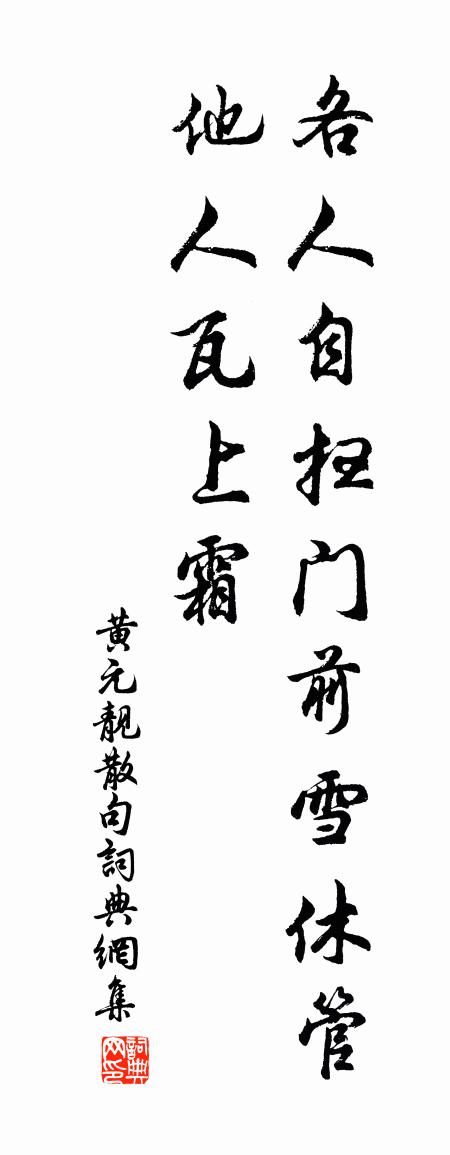 各人自扫门前雪休管
他人瓦上霜
黄元靓散句詞典網集
詞典网印